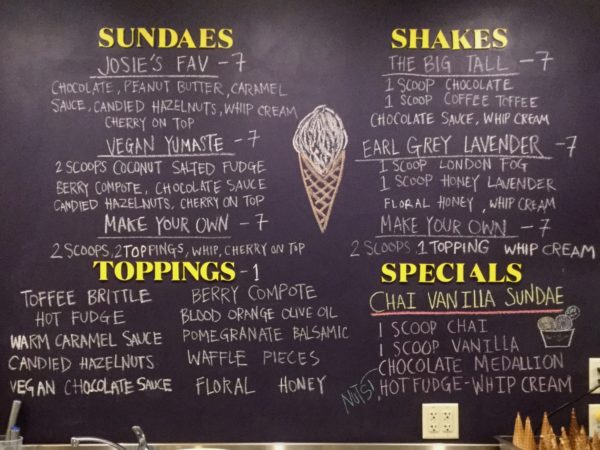 SUNDAES
JOSIE'S FAV - 7
CHOCOLATE, PEANUT BUTTER, CARAMEL
SAUCE, CANDIED HAZELNUTS, WHIP CREAM
CHERRY ON TOP
VEGAN YUMASTE - 7
2 SCOOPS COCONUT SALTED FUDGE
BERRY COMPOTE, CHOCOLATE SAUCE
CANDIED HAZELNUTS, CHERRY ON TOP
MAKE YOUR OWN - 7
2 SCOOPS, 2 TOPPINGS, WHIP, CHERRY ON TOP
TOPPINGS - 1
TOFFEE BRITTLE
HOT FUDGE
WARM CARAMEL SAUCE
CANDIED HAZELNUTS
VEGAN CHOCOLATE SAUCE
BERRY COMPOTE
BLOOD ORANGE OLIVE OIL
POMEGRANATE BALSAMIC
WAFFLE PIECES
FLORAL HONEY
SHAKES
THE BIG TALL - 7
1 SCOOP CHOCOLATE
1 SCOOP COFFEE TOFFEE
CHOCOLATE SAUCE, WHIP CREAM
EARL GREY LAVENDER - 7
1 SCOOP LONDON FOG
1 SCOOP HONEY LAVENDER
FLORAL HONEY, WHIP CREAM
MAKE YOUR OWN - 7
2 SCOOPS 1 TOPPING WHIP CREAM
SPECIALS
CHAI VANILLA SUNDAE
1 SCOOP CHAI
1 SCOOP VANILLA
CHOCOLATE MEDALLION
HOT FUDGE - WHIP CREAM
NUTS!